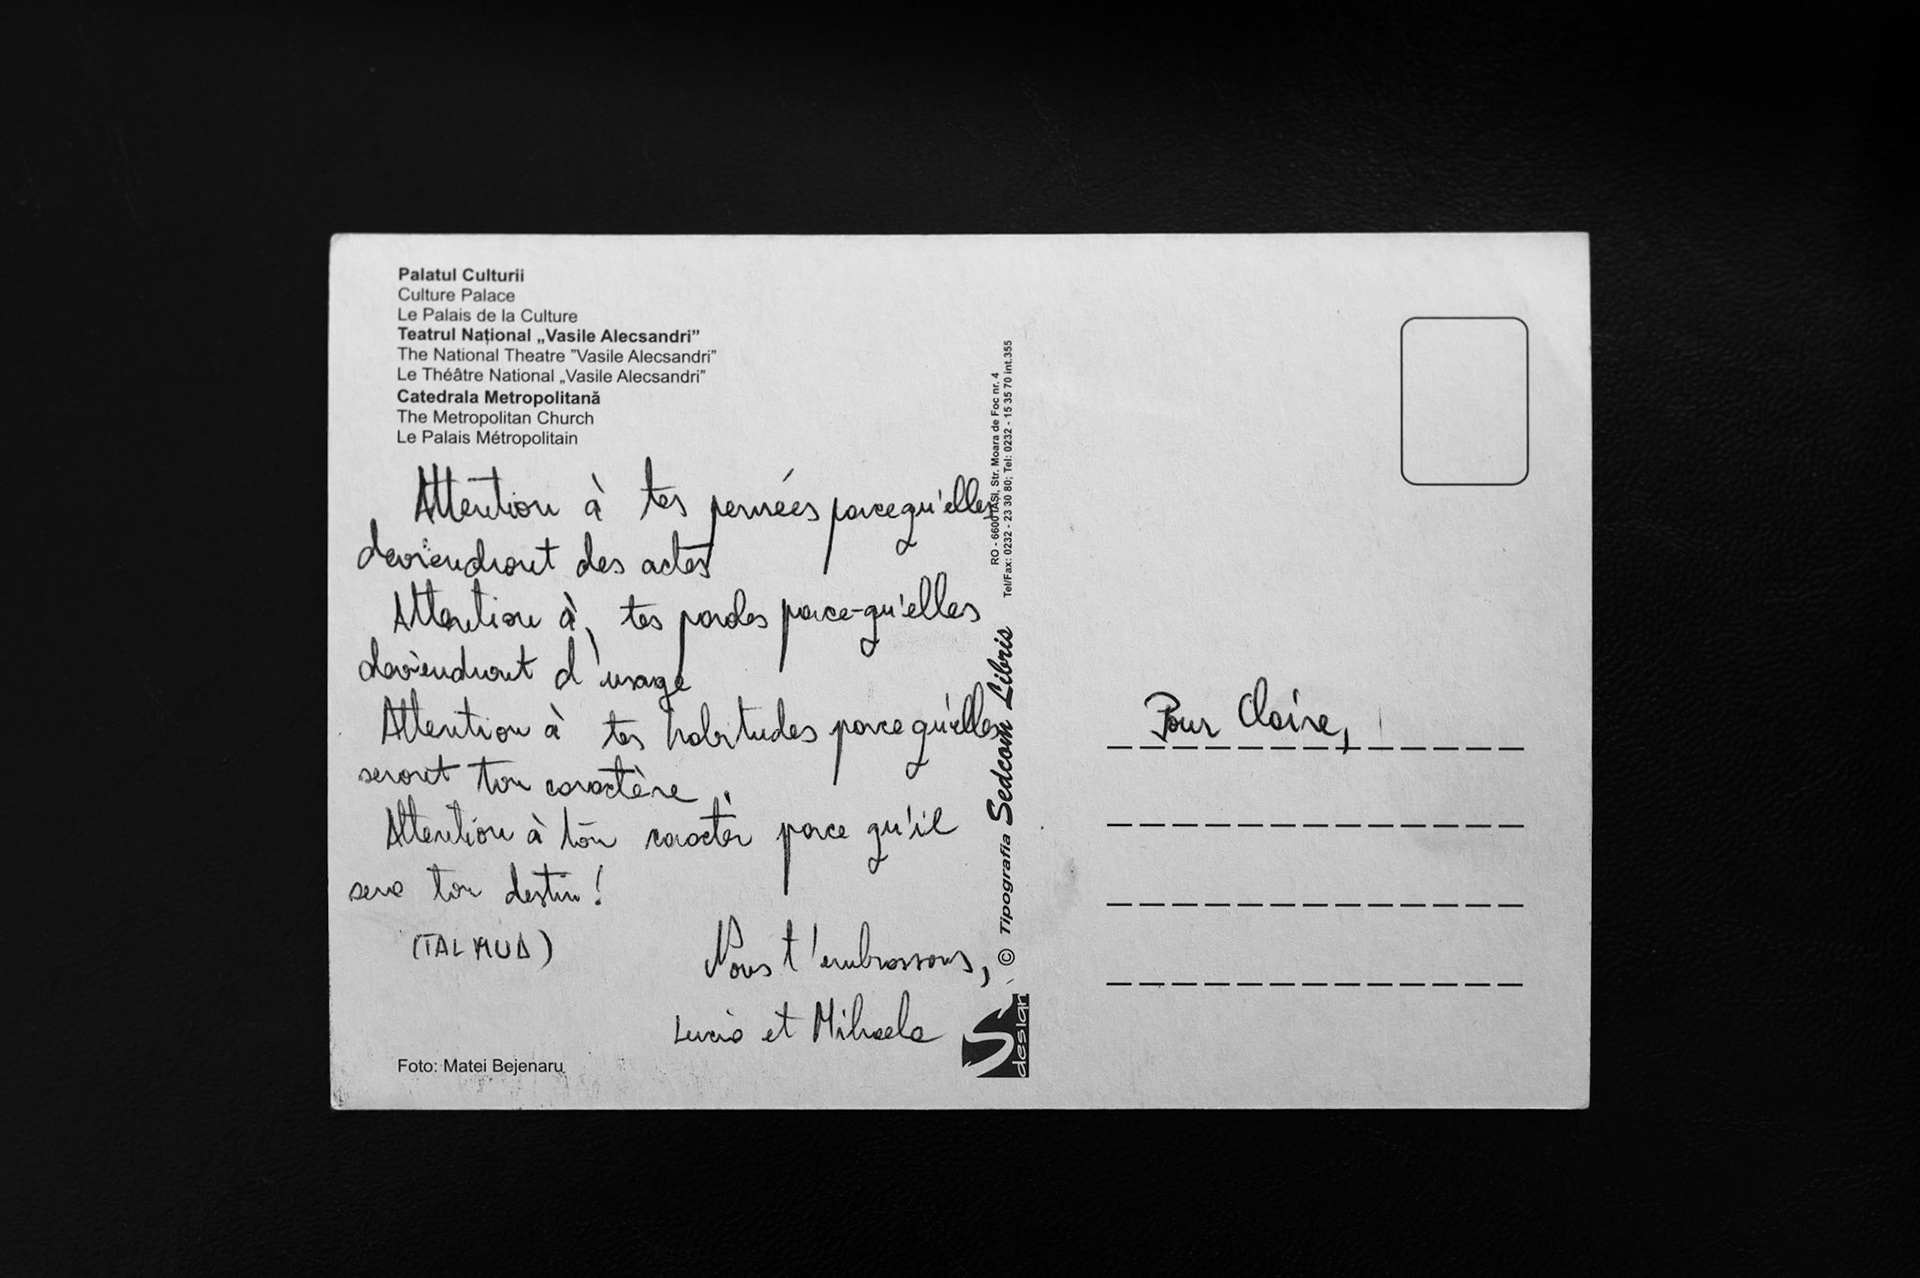 Palatul Culturii
Culture Palace
Le Palais de la Culture
Teatrul Național „Vasile Alecsandri”
The National Theatre ”Vasile Alecsandri”
Le Théâtre National „Vasile Alecsandri”
Catedrala Metropolitană
The Metropolitan Church
Le Palais Métropolitain
Attention à tes pensées parcequ'elles
deviendront des actes
Attention à tes paroles parce-qu'elles
deviendront d'usage
Attention à tes habitudes parce qu'elles
seront ton caractère.
Attention à ton caractèr parce qu'il
sera ton destin!
(TALMUD)
Nous t'embrassons,
Lucia et Mihaela
Foto: Matei Bejenaru
RO - 6600 IAȘI, Str. Moara de Foc nr. 4
Tel/Fax: 0232 - 23 30 80; Tel: 0232 - 15 35 70 int.355
© Tipografia Sedcom Libris
S design
Pour Claire,